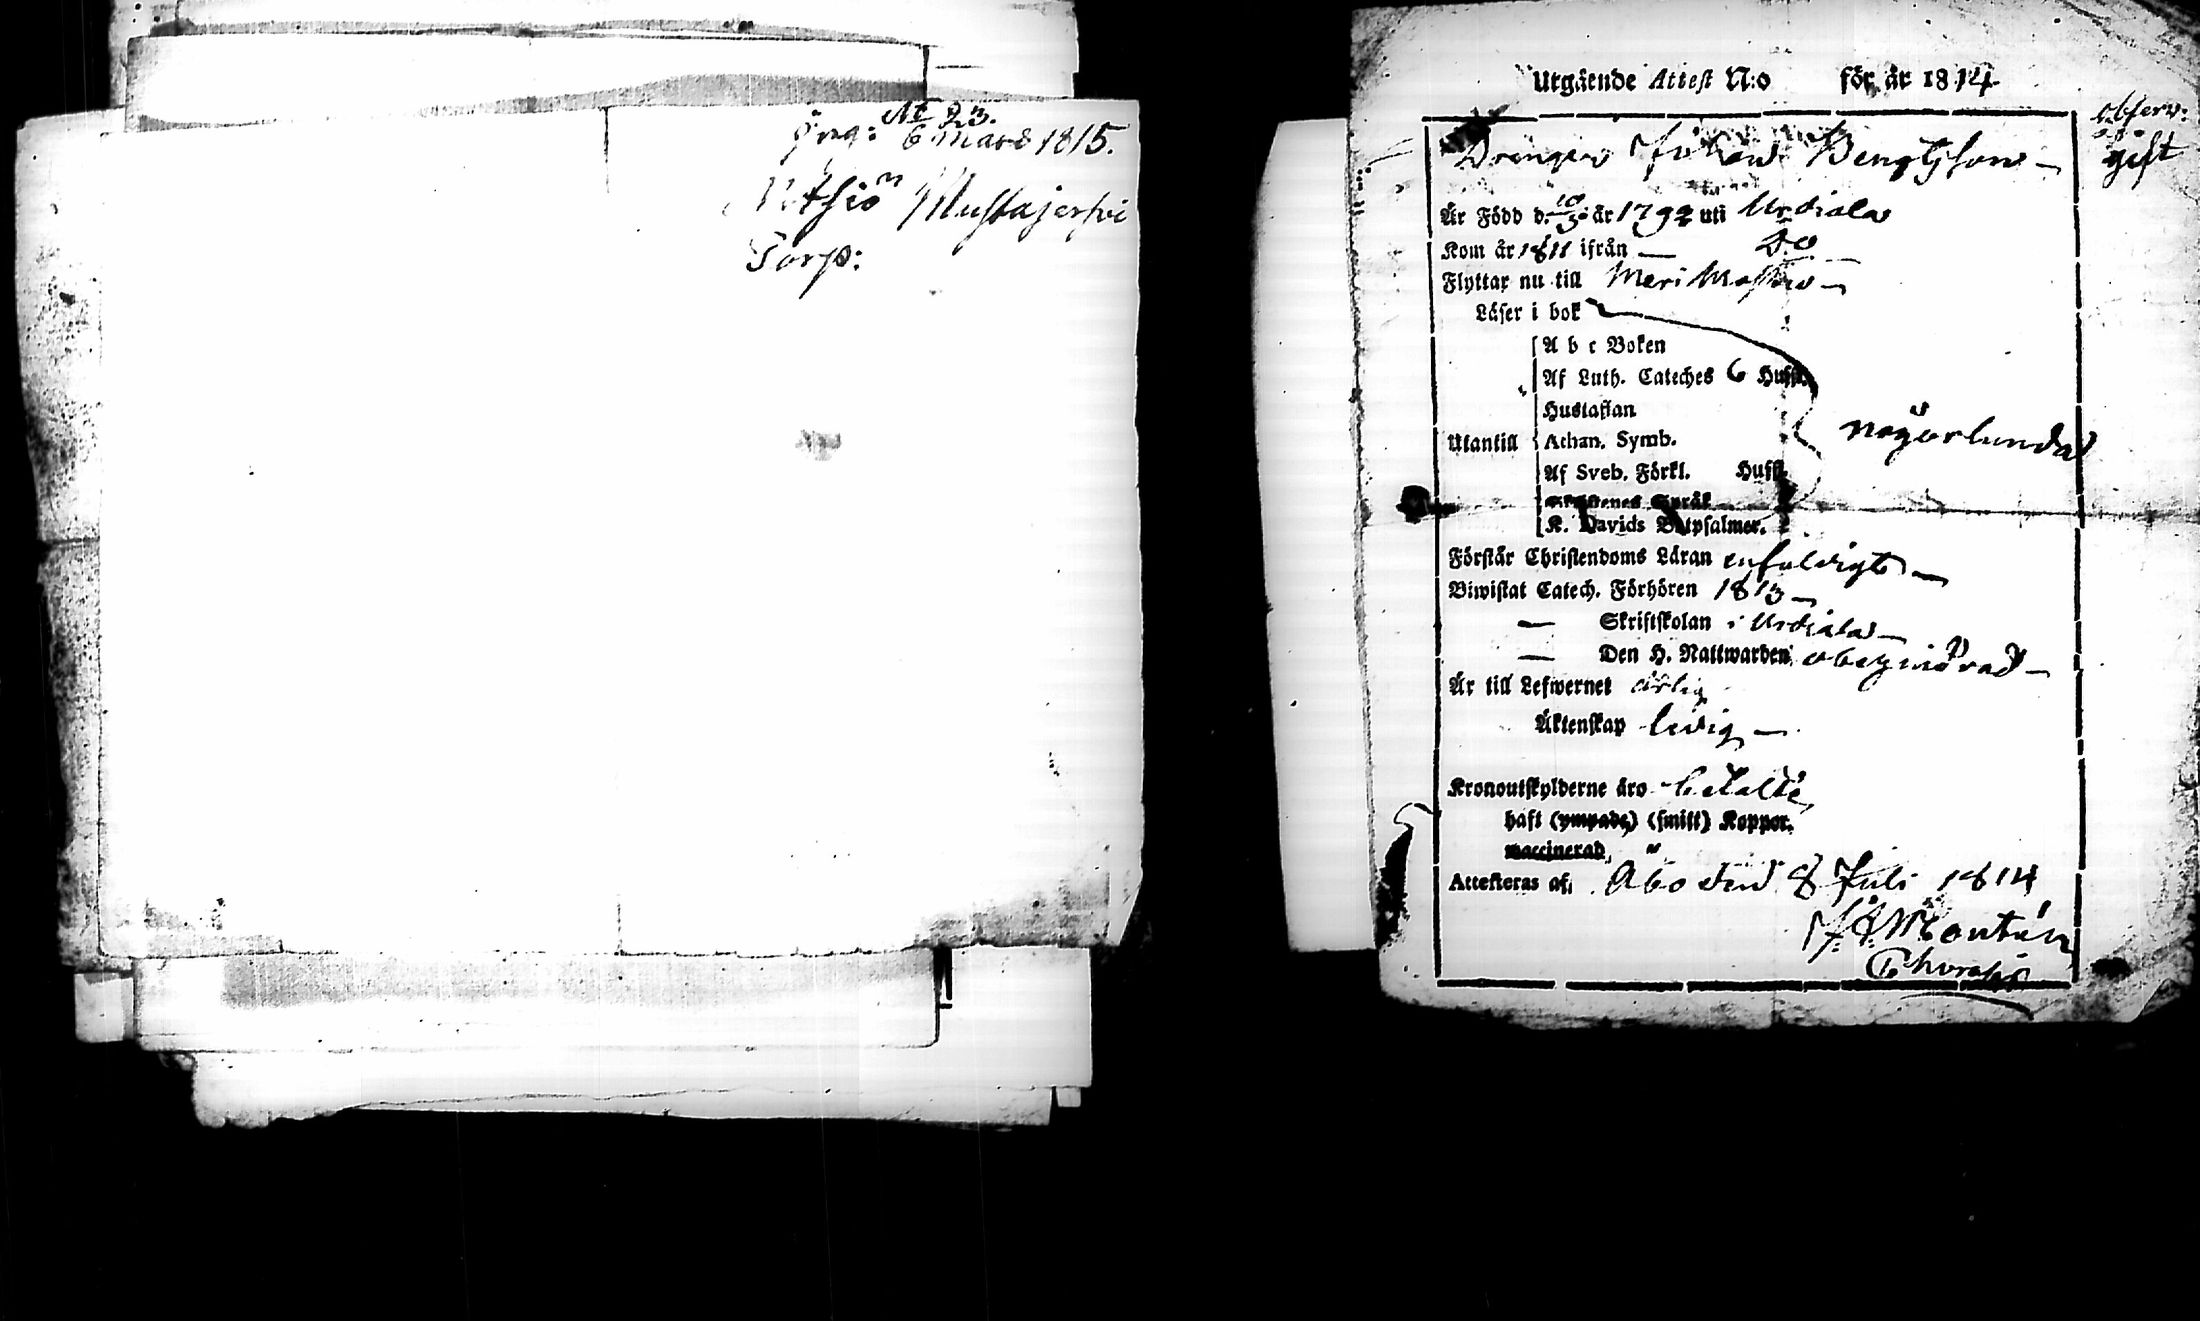 № 23.
Ing: 6 Mars 1815.
Mustajerfvi
Torp:
Utgående Attest N:o för år 1814
Observ:
gift
Drengen Johan Bengtsson
Är Född d. 10/3 år 1792 uti Urdiala
Kom år 1811 ifrån — D:o
Flyttar nu till Meri
Läser i bok
A b c Boken
Af Luth. Cateches 6 Hufst.
Hustaflan
Utantill Athan. Symb.
någorlunda
Af Sveb. Förkl. Hufst.
Skriftenes Språk
K. Davids Botpsalmer.
Förstår Christendoms Läran enfaldigt —
Biwistat Catech. Förhören 1813 —
— Skriftskolan i Urdiala —
— Den H. Nattwarden obehindrad —
Är till Lefwernet ärlig
Äktenskap ledig —
Kronoutskylderne äro betalte
haft (ympade) (smitt) Koppor.
vaccinerad
Attesteras af, Åbo den 8 Juli 1814
Montén